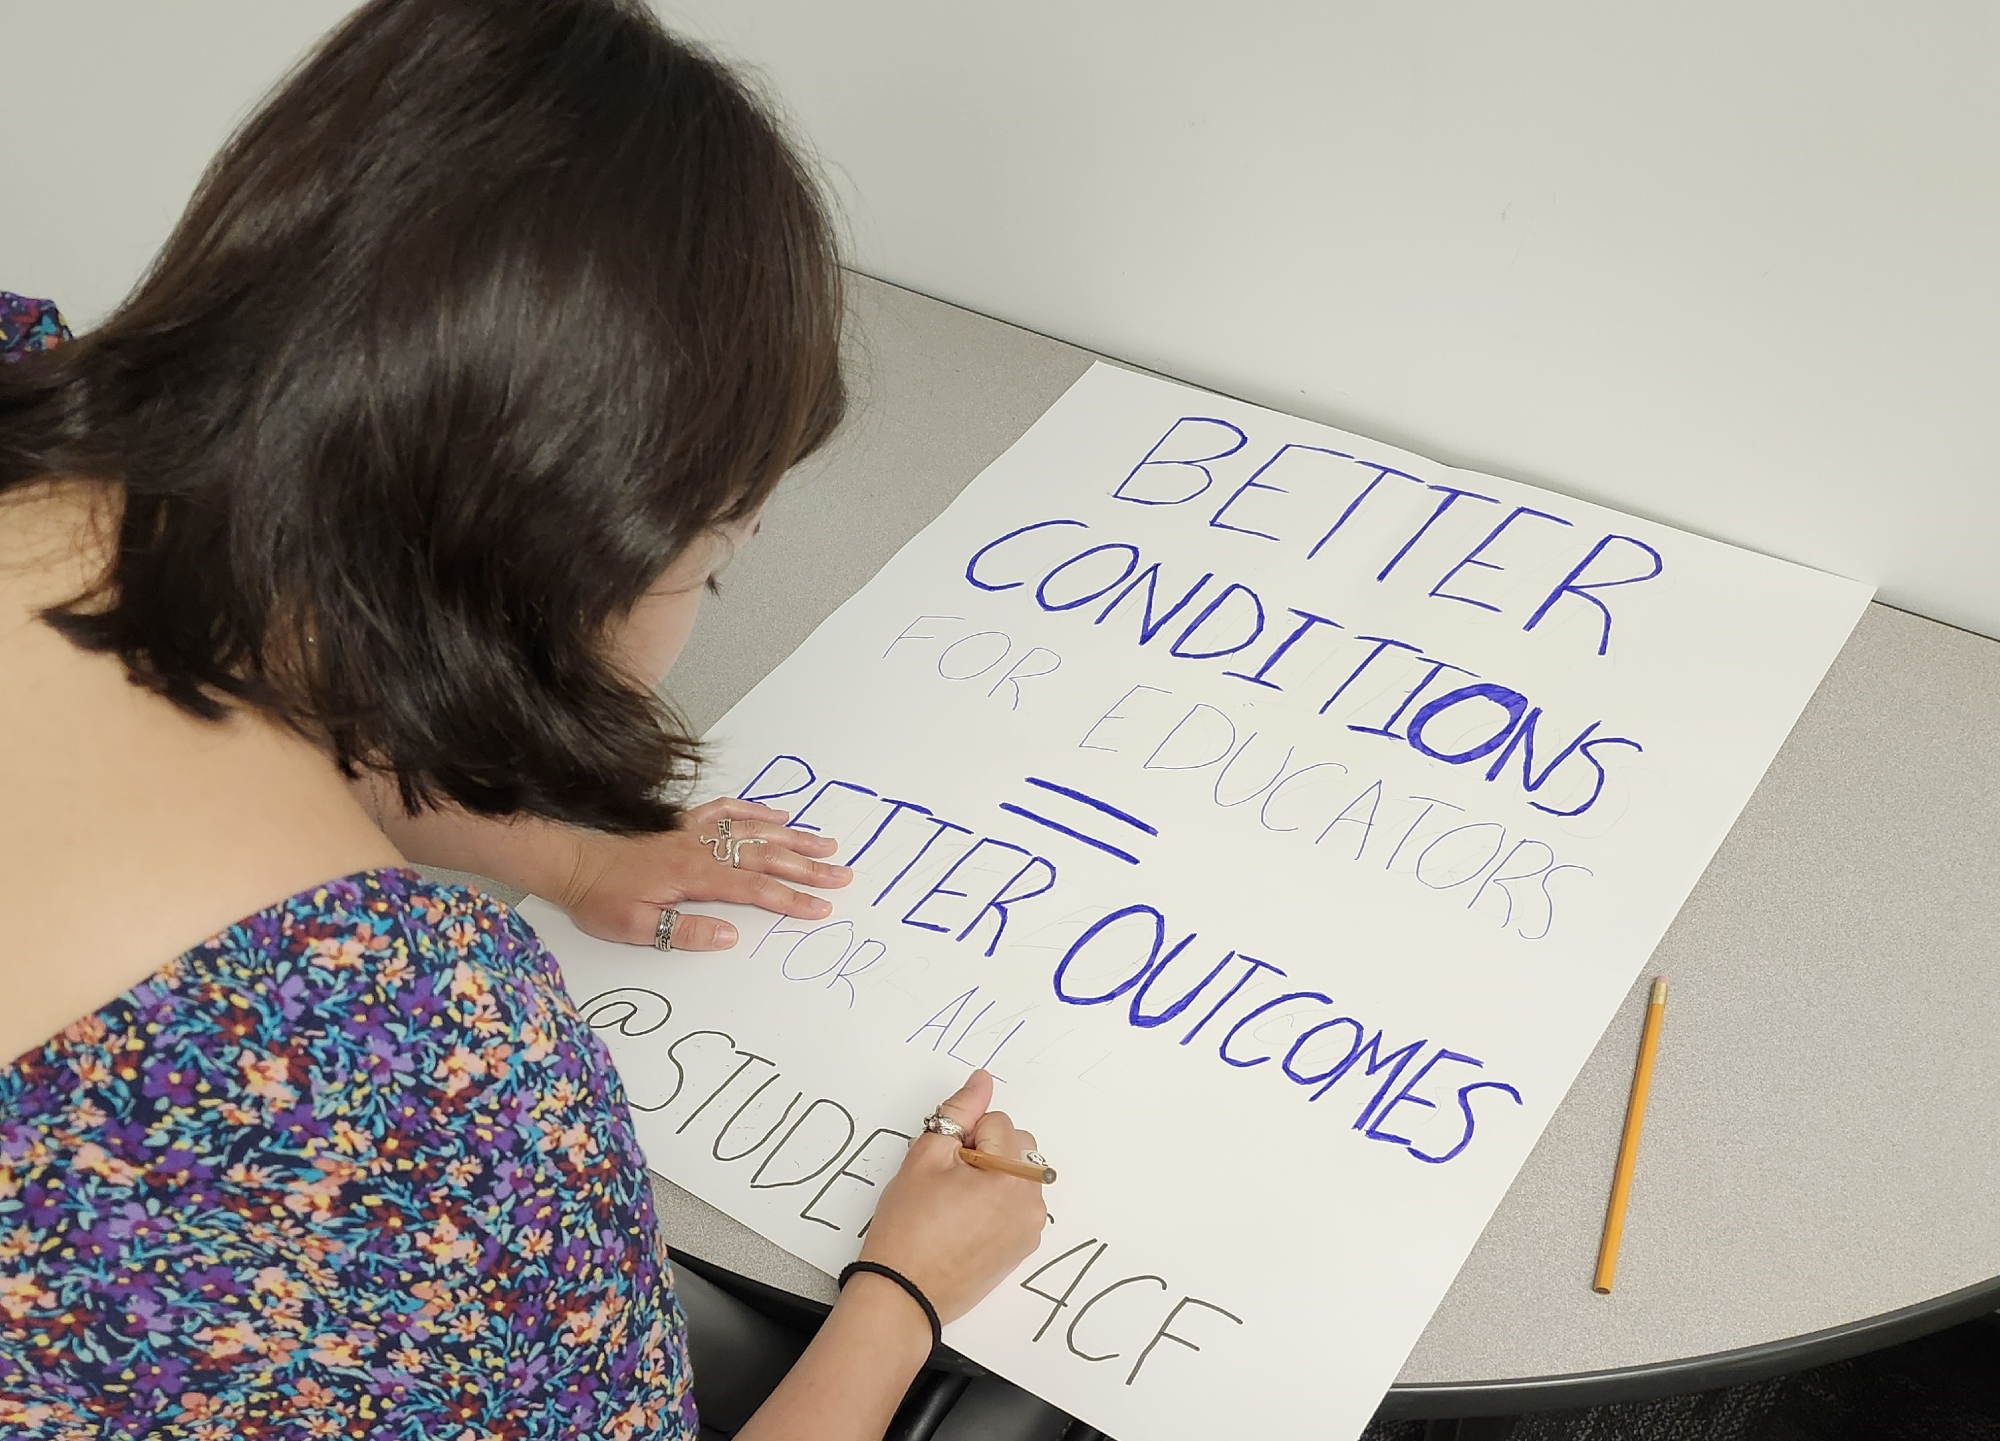 BETTER
CONDITIONS
FOR EDUCATORS
=
BETTER OUTCOMES
FOR ALL
@STUDE 4CF